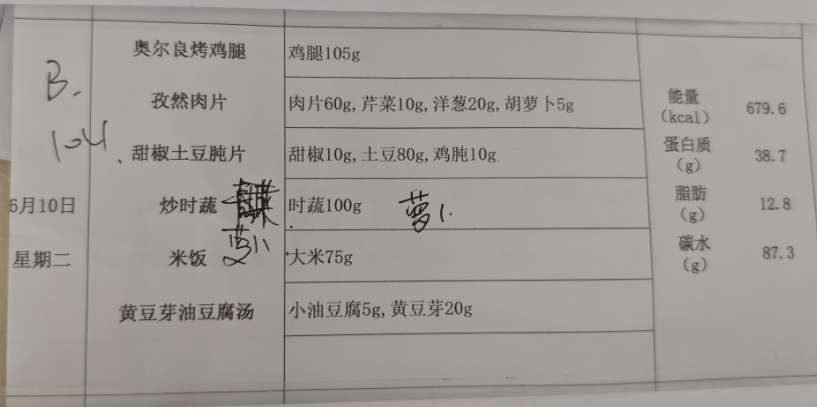 奥尔良烤鸡腿 鸡腿105g
B.
孜然肉片 肉片60g,芹菜10g,洋葱20g,胡萝卜5g 能量(kcal) 679.6
104
、甜椒土豆肫片 甜椒10g,土豆80g,鸡肫10g 蛋白质(g) 38.7
6月10日 炒时蔬 时蔬100g 萝卜 脂肪(g) 12.8
星期二 米饭 大米75g 碳水(g) 87.3
黄豆芽油豆腐汤 小油豆腐5g,黄豆芽20g